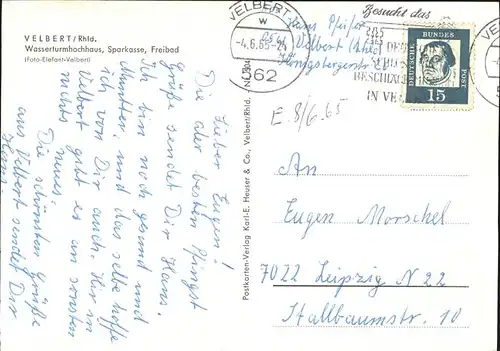 VELBERT/Rhld.
Wasserturmhochhaus, Sparkasse, Freibad
(Foto-Elefant-Velbert)
Lieber Eugen!
Die aller besten Pfingst
Grüße sendet Dir Hans.
Ich bin noch gesund und
Munter, und das selbe hoffe
ich von Dir auch. Hir in
Velbert gibt es an sonsten
nichts neues.
Die schönsten Grüße
aus Velbert sendet Dir
Hans.
Postkarten-Verlag Karl-E. Heuser & Co., Velbert/Rhld.
VELBERT
w
-4.6.65-
562
Hans Pfeifer
Velbert (Rhld)
Königsbergerstr
Besucht das
DE
BESCHLÄ
IN VE
DEUTSCHE BUNDESPOST
15
VE
E. 8/6.65
An
Eugen Morschel
7022 Leipzig N 22
Stallbaumstr. 10